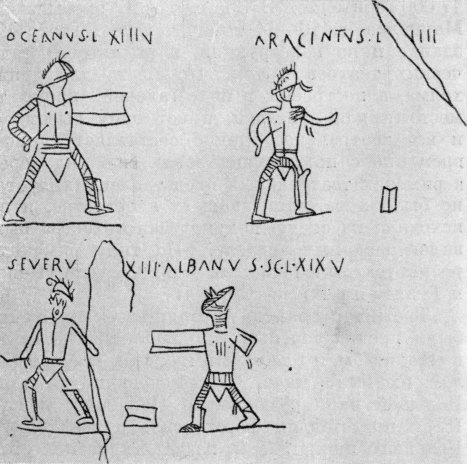 OCEANVS·L XIIIV
ARACINTVS·L IIII
SEVERV XIII·ALBANV S·SC·L·XIXV